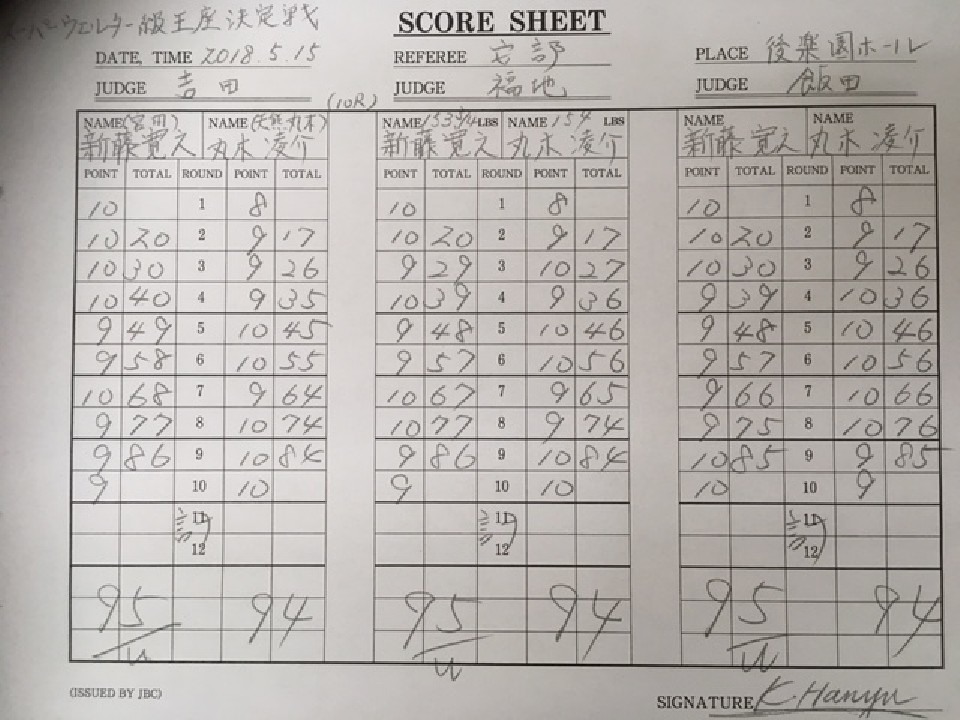 スーパーウェルター級王座決定戦
SCORE SHEET
DATE, TIME 2018.5.15 REFEREE 安部 PLACE 後楽園ホール
JUDGE 吉田 JUDGE 福地 JUDGE 飯田
(10R)
NAME(宮田) NAME(天熊丸木) NAME 153 3/4 LBS NAME 154 LBS NAME NAME
新藤寛之 丸木凌介 新藤寛之 丸木凌介 新藤寛之 丸木凌介
POINT TOTAL ROUND POINT TOTAL POINT TOTAL ROUND POINT TOTAL POINT TOTAL ROUND POINT TOTAL
10 1 8 10 1 8 10 1 8
10 20 2 9 17 10 20 2 9 17 10 20 2 9 17
10 30 3 9 26 9 29 3 10 27 10 30 3 9 26
10 40 4 9 35 10 39 4 9 36 9 39 4 10 36
9 49 5 10 45 9 48 5 10 46 9 48 5 10 46
9 58 6 10 55 9 57 6 10 56 9 57 6 10 56
10 68 7 9 64 10 67 7 9 65 9 66 7 10 66
9 77 8 10 74 10 77 8 9 74 9 75 8 10 76
9 86 9 10 84 9 86 9 10 84 10 85 9 9 85
9 10 10 9 10 10 10 10 9
11 11 11
12 12 12
95 94 95 94 95 94
W W W
(ISSUED BY JBC)
SIGNATURE K.Hanyu